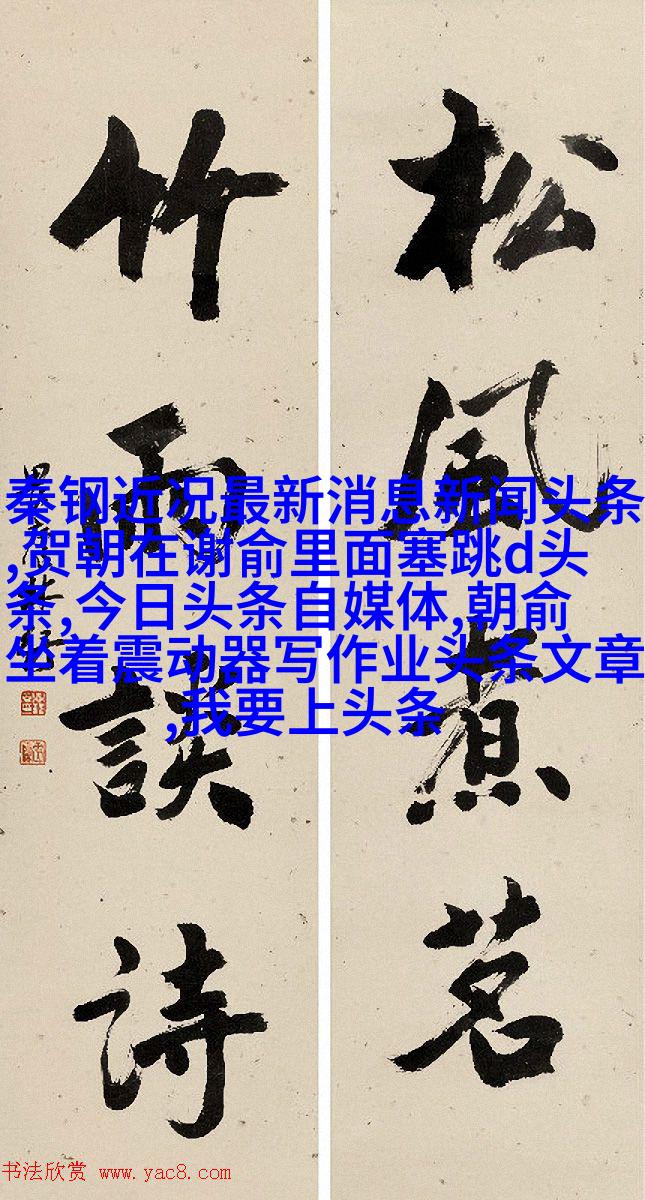 松
風
煮
茗
竹
雨
談
詩
秦钢近况最新消息新闻头条
,贺朝在谢俞里面塞跳d头
条,今日头条自媒体,朝俞
坐着震动器写作业头条文章
,我要上头条
书法欣赏 www.yac8.com